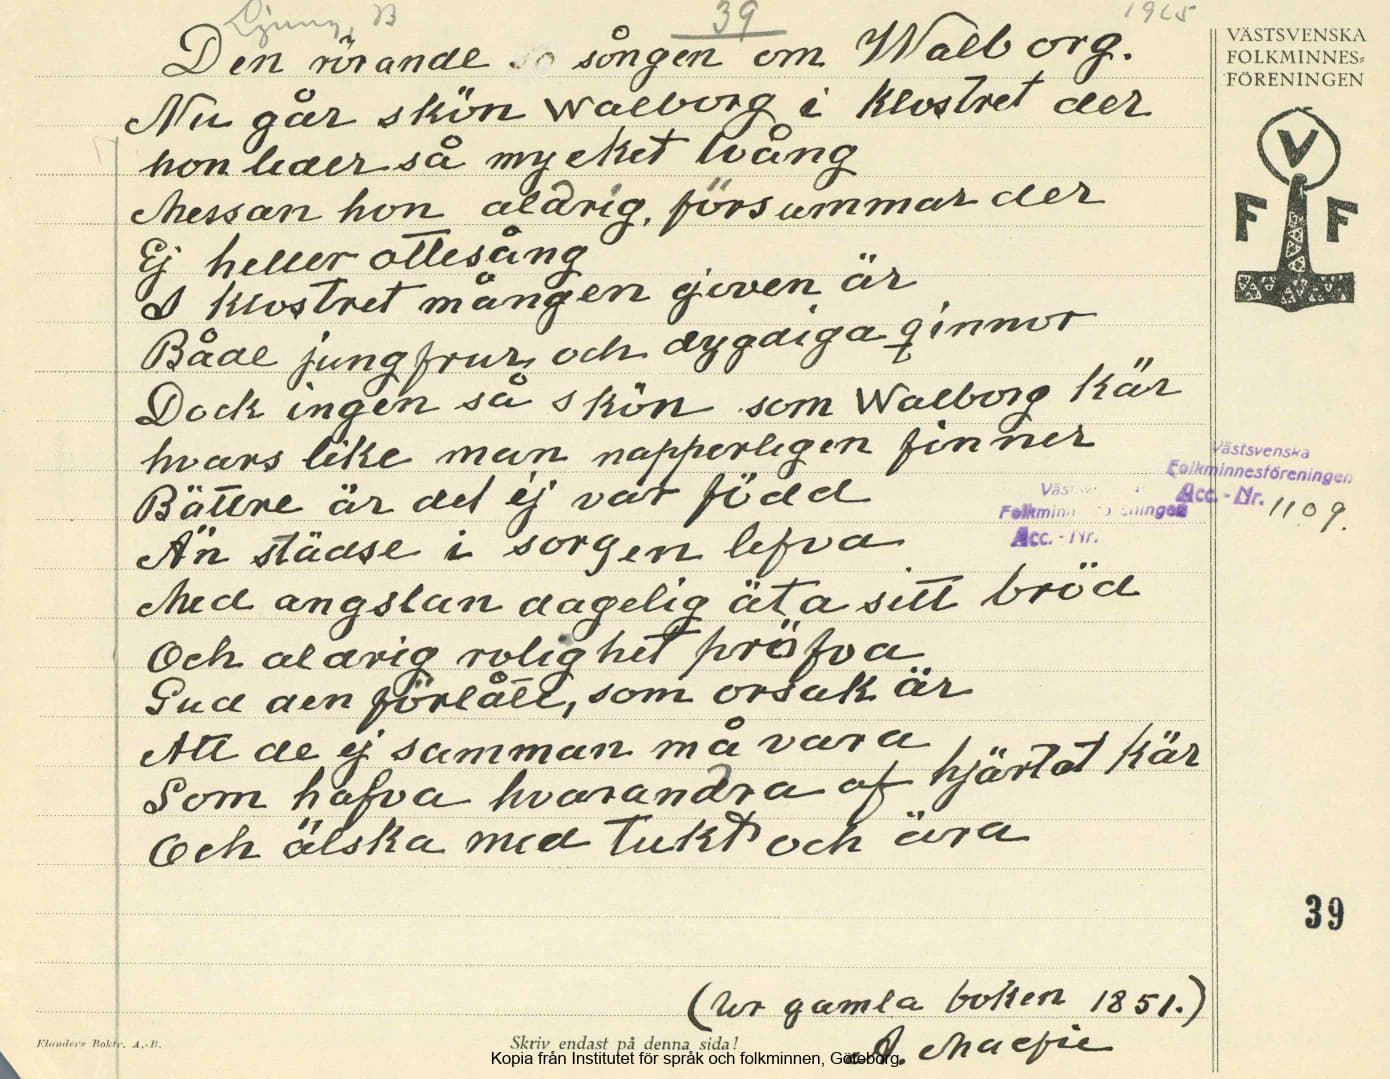 Ljung, B
39
1925
Den rörande so sången om Walborg.
Nu går skön Walborg i Klostret der
hon leder så mycket tvång
Messan hon aldrig, försummar der
Ej heller ottesång
I Klostret mången given är
Både jungfrur, och dygdiga qinnor
Dock ingen så skön som Walborg kär
hvars like man napperligen finner
Bättre är det ej var född
Än städse i sorgen lefva
Med angslan dagelig äta sitt bröd
Och aldrig rolighet pröfva
Gud den förlåte, som orsak är
Att de ej samman må vara
Som hafva hvarandra af hjärtat kär
Och älska med tukt och ära
(Ur gamla boken 1851.)
A. Macfie
VÄSTSVENSKA
FOLKMINNES=
FÖRENINGEN
V
F F
Västsvenska
Folkminnesföreningen
Acc. - Nr. 1109.
Folkminnesföreningen
Acc. - Nr.
39
Elanders Boktr. A.-B.
Skriv endast på denna sida!
Kopia från Institutet för språk och folkminnen, Göteborg.